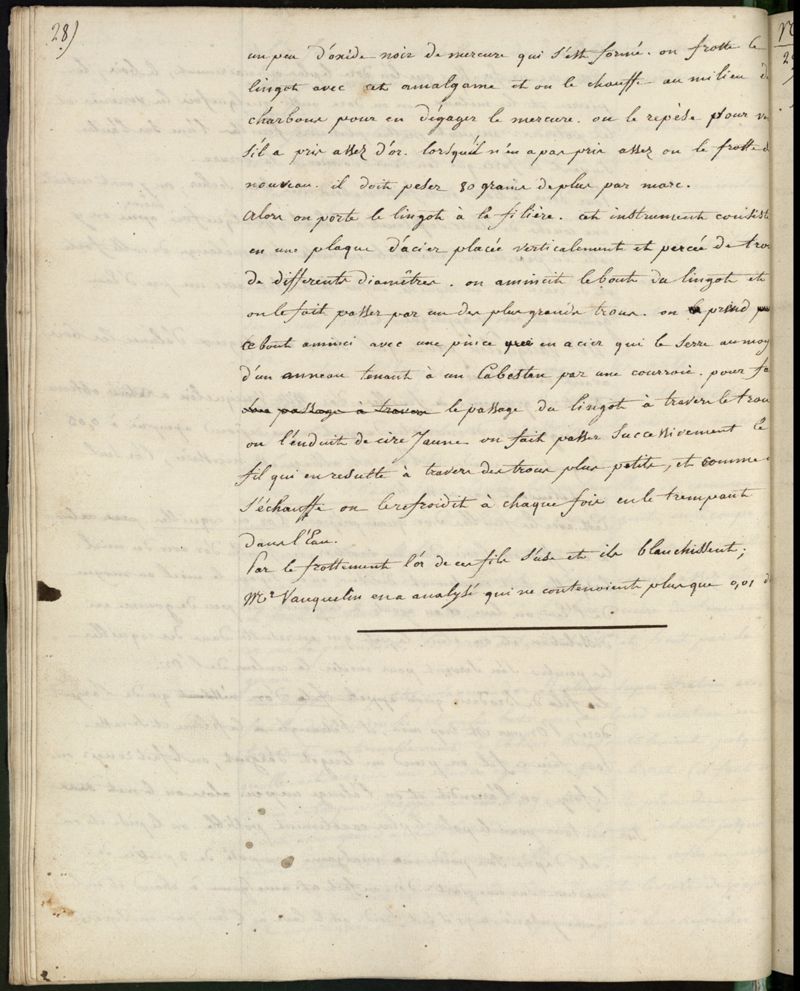 28)
un peu d'oxide noir de mercure qui s'est formé. on frotte le
lingot avec cet amalgame et on le chauffe au milieu d
charbons pour en dégager le mercure. on le repèse pour v
s'il a pris assez d'or. lorsqu'il n'en a pas pris assez on le frotte d
nouveau. il doit peser 30 grains de plus par marc.
Alors on porte le lingot à la filière. cet instrument consist
en une plaque d'acier placée verticalement et percée de trou
de differents diamêtres. on amincit le bout du lingot et
on le fait passer par un des plus grands trous. on prend
ce bout aminci avec une pince en acier qui le serre au moy
d'un anneau tenant à un Cabestan par une courroie. pour fa
son passage à travers le passage du lingot à travers le trou
on l'enduit de cire Jaune on fait passer successivement le
fil qui en resulte à travers des trous plus petits, et comme
s'échauffe on le refroidit à chaque fois en le trempant
dans l'Eau.
Par le frottement l'or de ces fils s'use et ils blanchissent;
Mr. Vauquelin en a analysé qui ne contenoient plus que 0,01 d